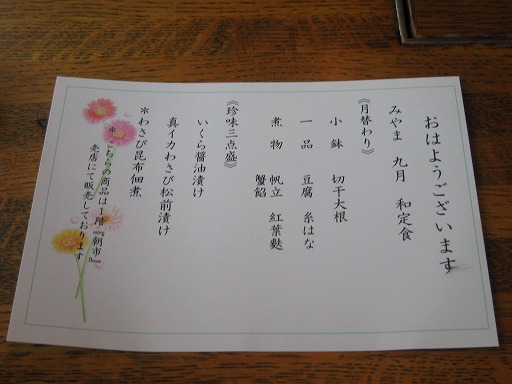 おはようございます
みやま 九月 和定食
《月替わり》
小鉢 切干大根
一品 豆腐 糸はな
煮物 帆立 紅葉麩
蟹餡
《珍味三点盛》
いくら醤油漬け
真イカわさび松前漬け
＊わさび昆布佃煮
＊こちらの商品は１階『朝市』
売店にて販売しております